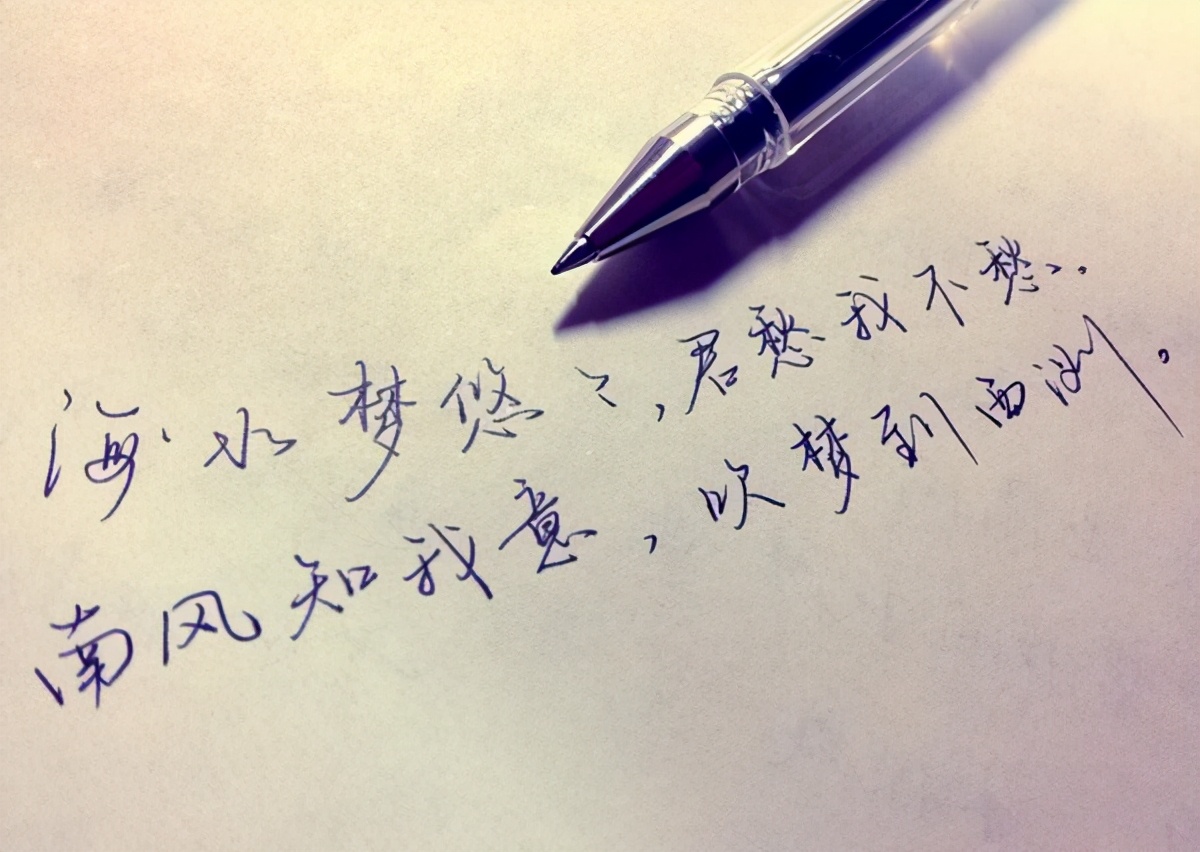 海水梦悠々,君愁我不愁.
南风知我意,吹梦到西洲。